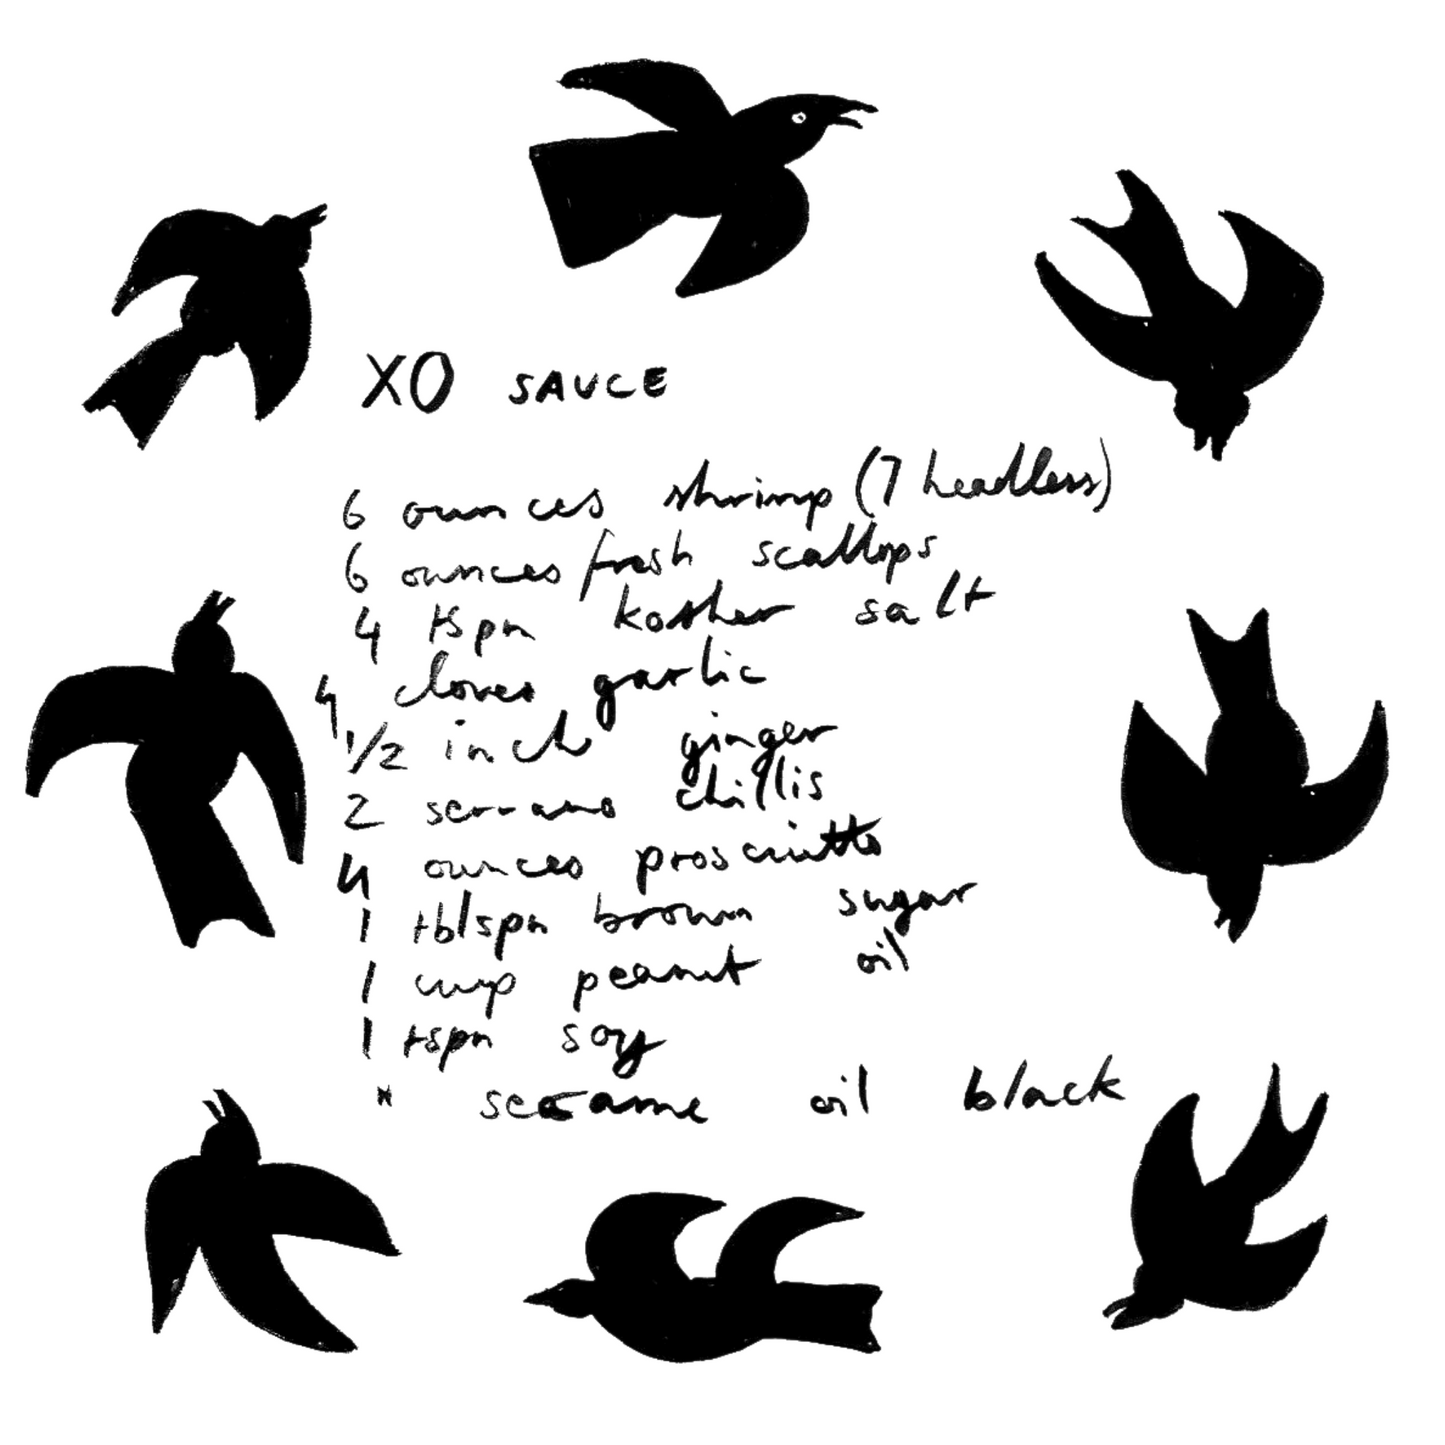 XO SAUCE
6 ounces shrimp (7 headless)
6 ounces fresh scallops
4 tspn kosher salt
4 cloves garlic
1/2 inch ginger
2 serrano chillis
4 ounces prosciutto
1 tblspn brown sugar
1 cup peanut oil
1 tspn soy
* sesame oil black